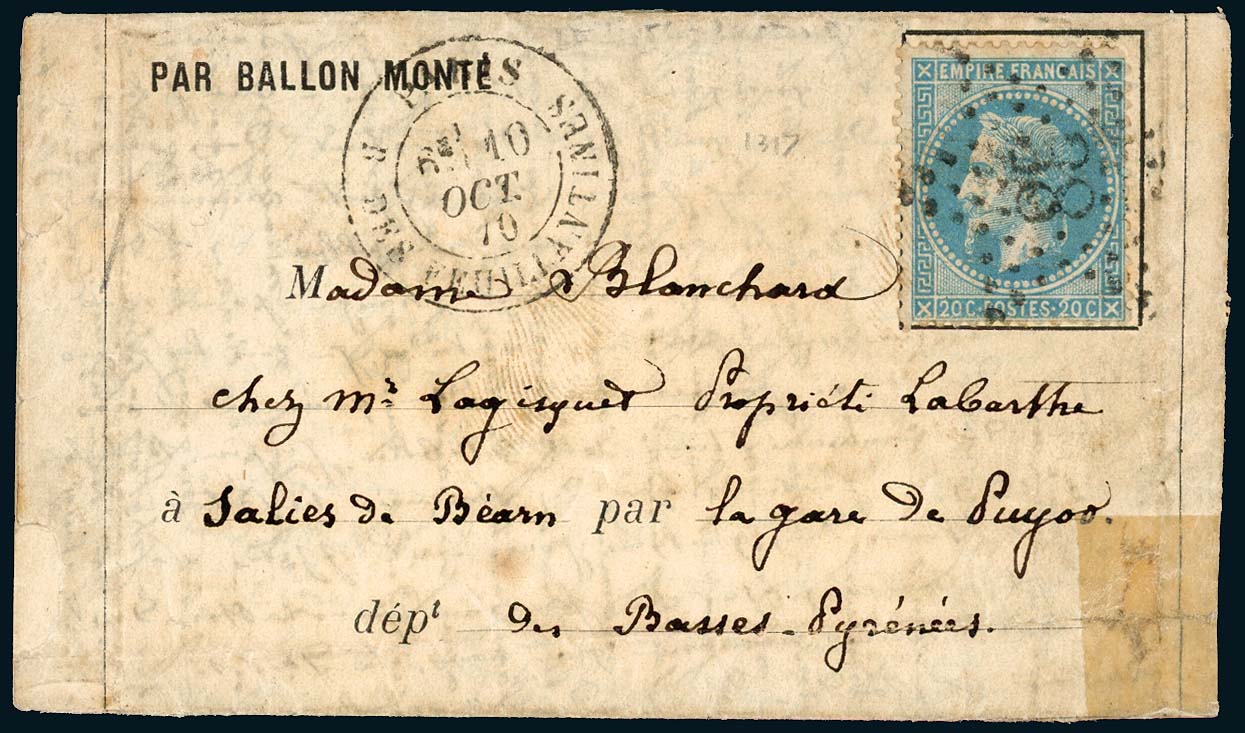 PAR BALLON MONTÉ
PARIS
R. DES FEUILLANTINES
10
OCT.
70
1317
EMPIRE FRANÇAIS
20 C · POSTES · 20 C
38
Madame Blanchard
chez Mr Lagisquet Propriété Labarthe
à Salies de Béarn par la gare de Puyoo.
dépt des Basses-Pyrénées.